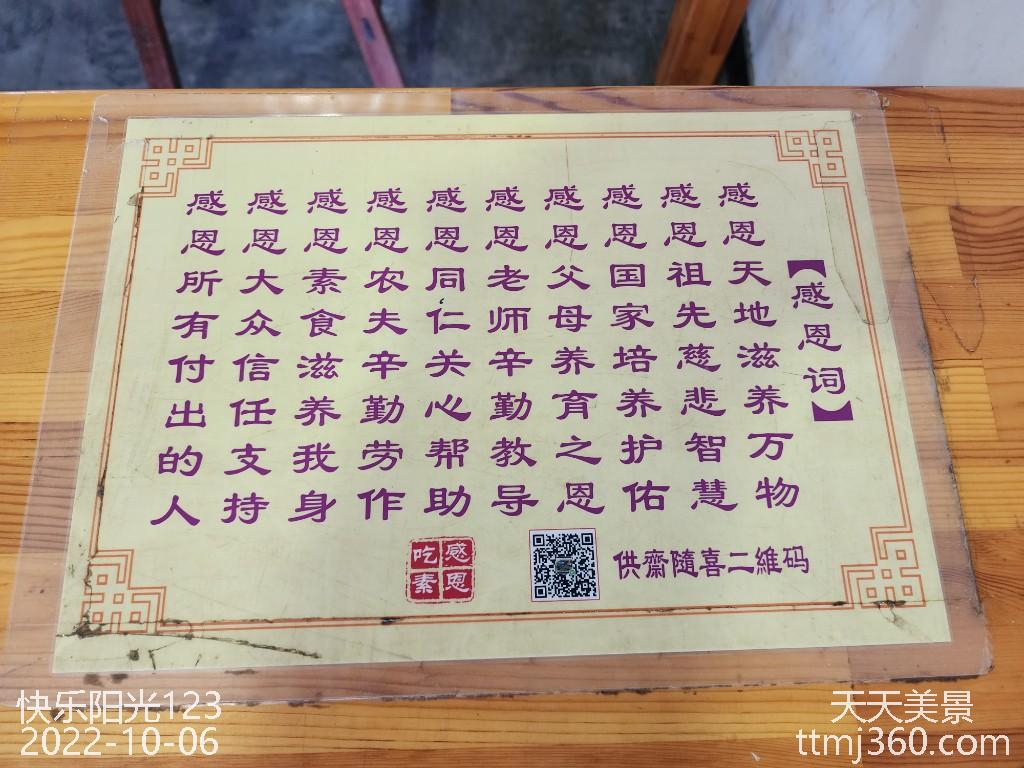 【感恩词】
感恩天地滋养万物
感恩祖先慈悲智慧
感恩国家培养护佑
感恩父母养育之恩
感恩老师辛勤教导
感恩同仁关心帮助
感恩农夫辛勤劳作
感恩素食滋养我身
感恩大众信任支持
感恩所有付出的人
供齋隨喜二維码
感恩
吃素
快乐阳光123
2022-10-06
天天美景
ttmj360.com